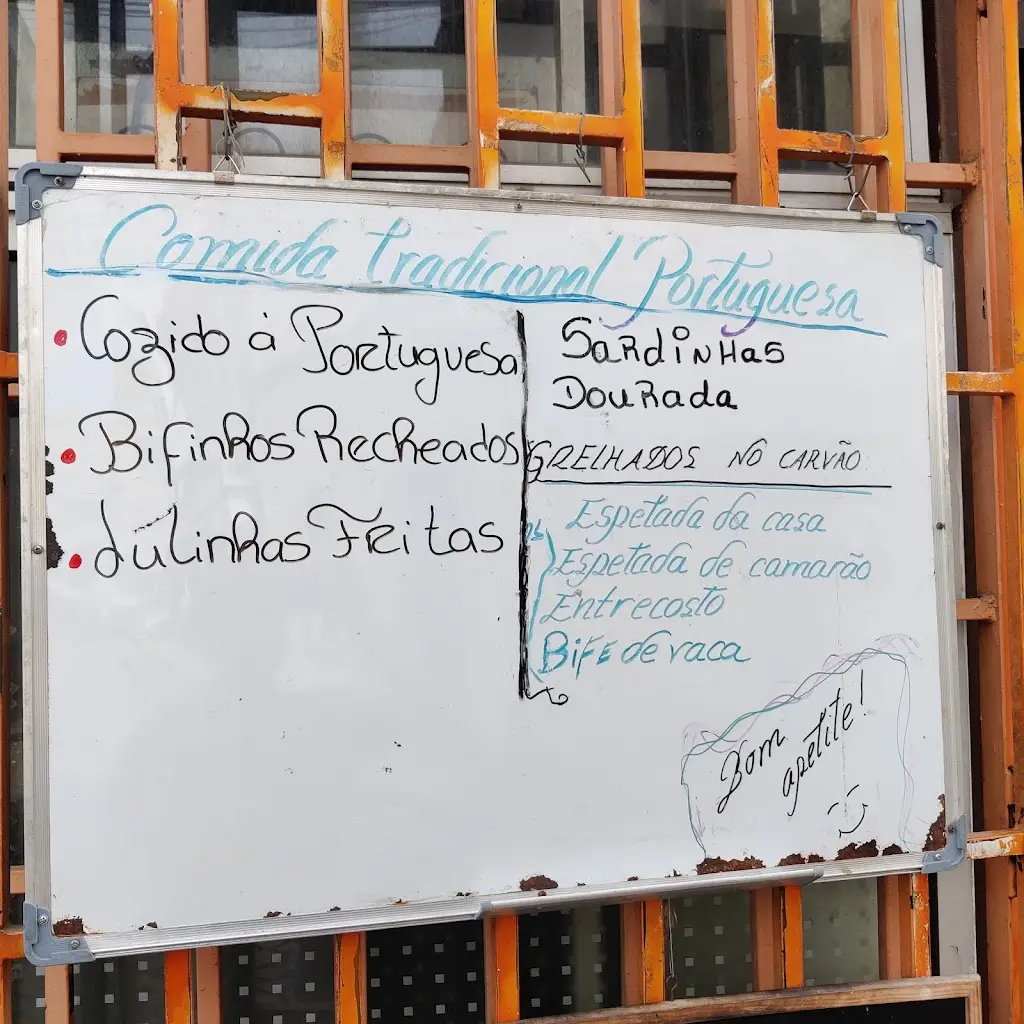 Comida tradicional Portuguesa
Cozido à Portuguesa
Bifinhos Recheados
Lulinhas Fritas
Sardinhas
Dourada
GRELHADOS NO CARVÃO
Espetada da casa
Espetada de camarão
Entrecosto
Bife de vaca
Bom
apetite!